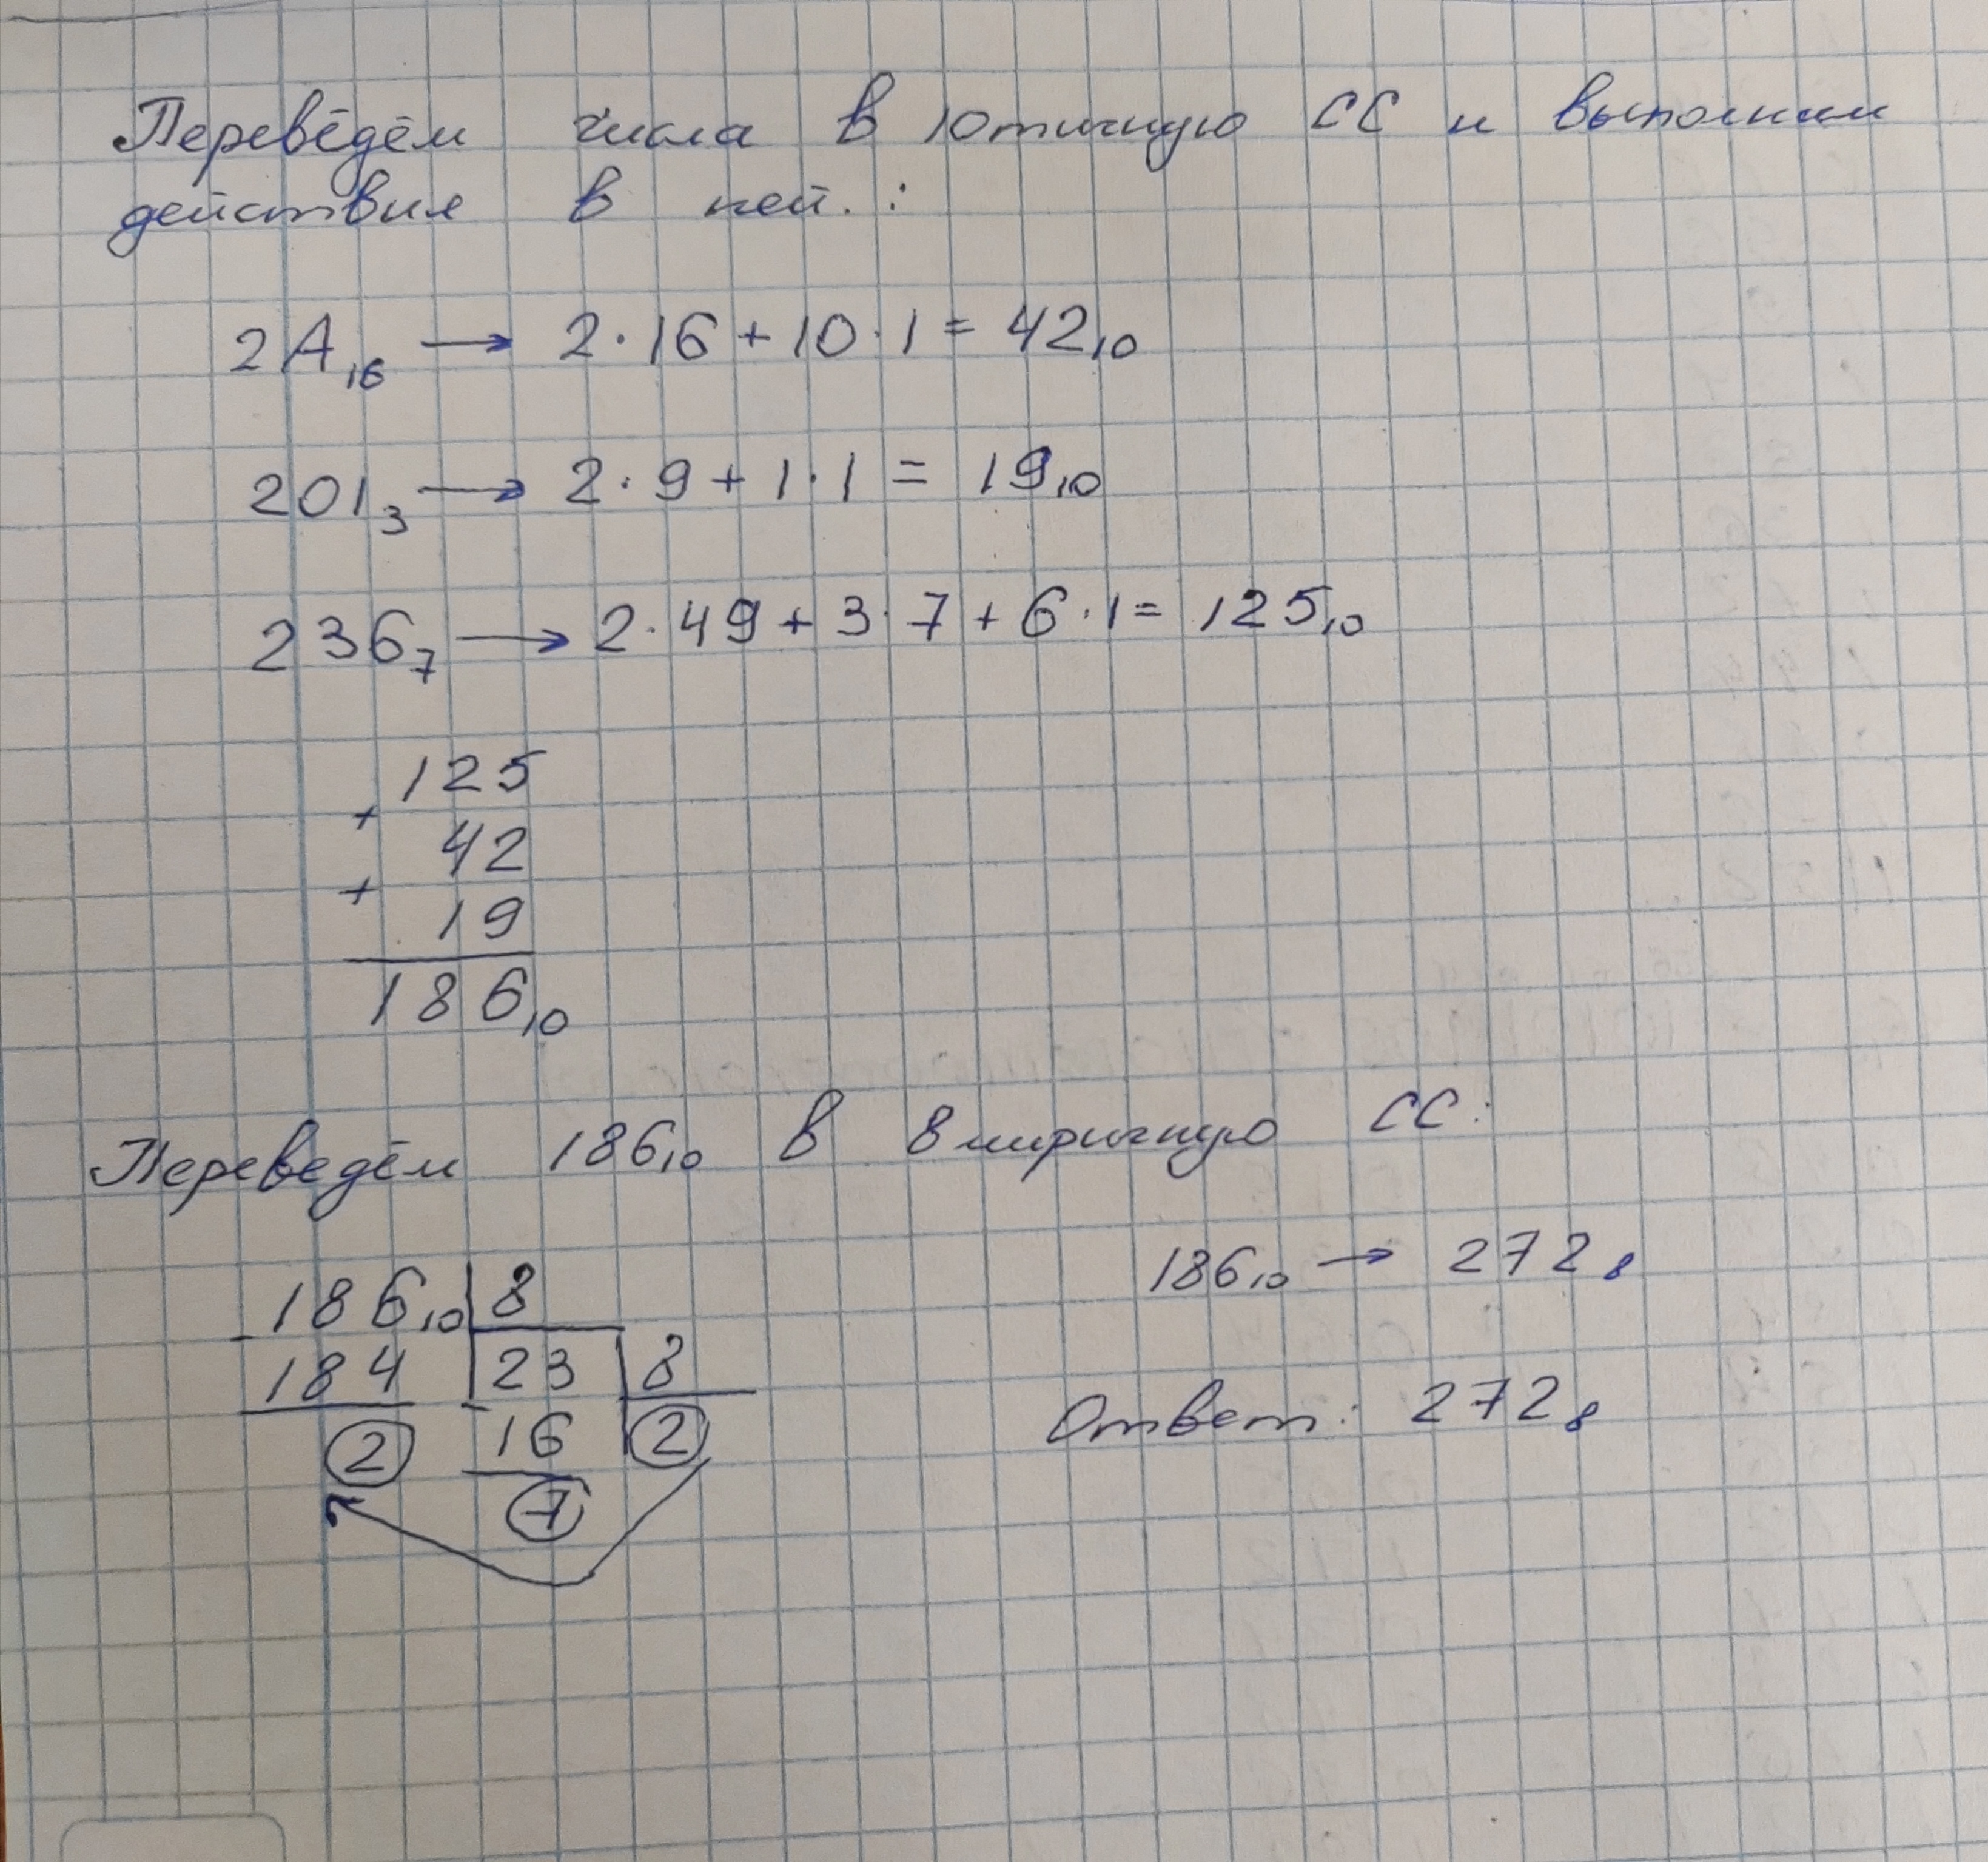 Переведём числа в 10тичную СС и выполним
действия в ней. :
2A₁₆ → 2·16 + 10·1 = 42₁₀
201₃ → 2·9 + 1·1 = 19₁₀
236₇ → 2·49 + 3·7 + 6·1 = 125₁₀
125
+
42
+
19
186₁₀
Переведём 186₁₀ в 8миричную СС:
186₁₀ → 272₈
186₁₀ 8
-
184 23 8
-
2 16 2
7
Ответ: 272₈